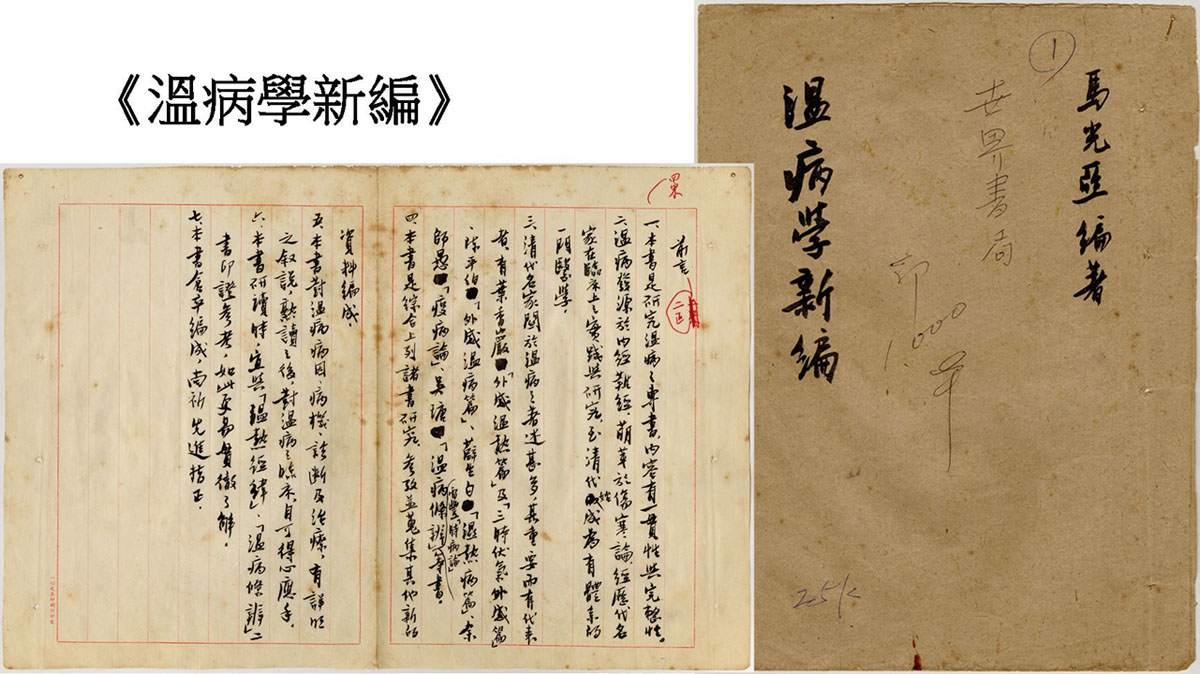 《溫病學新編》
馬光亞編著
1
世界書局
印1000本
溫病學新編
25K
前言
二正
一、本書是研究溫病之專書，內容有一貫性與完整性。
二、溫病發源於內經難經，萌芽於傷寒論，經歷代名
家在臨床上之實踐與研究，至清代始成為有體系的
一門醫學。
三、清代名家關於溫病之著述甚多，其重要而有代表
者，有葉香巖「外感溫熱篇」及「三時伏氣外感篇」
、陳平伯「外感溫病篇」、薛生白「濕熱病篇」、余
師愚「疫病論」、吳瑭「溫病條辨」雷豐「時病論」等書。
四、本書是綜合上列諸書研究，參考並蒐集其他新的
資料編成。
五、本書對溫病病因、病機、診斷及治療，有詳明
之敘說，熟讀之後，對溫病之臨床，自可得心應手。
六、本書研讀時，宜與「溫熱經緯」、「溫病條辨」二
書印證參考，如此更易貫徹了解。
七、本書倉卒編成，尚祈先進指正。